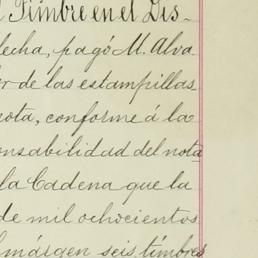 l Timbre en el Dis-
fecha, pagó M. Alva
r de las estampillas
ota, conforme á la
onsabilidad del nota
la Cadena que la
de mil ochocientos
l márgen seis timbres